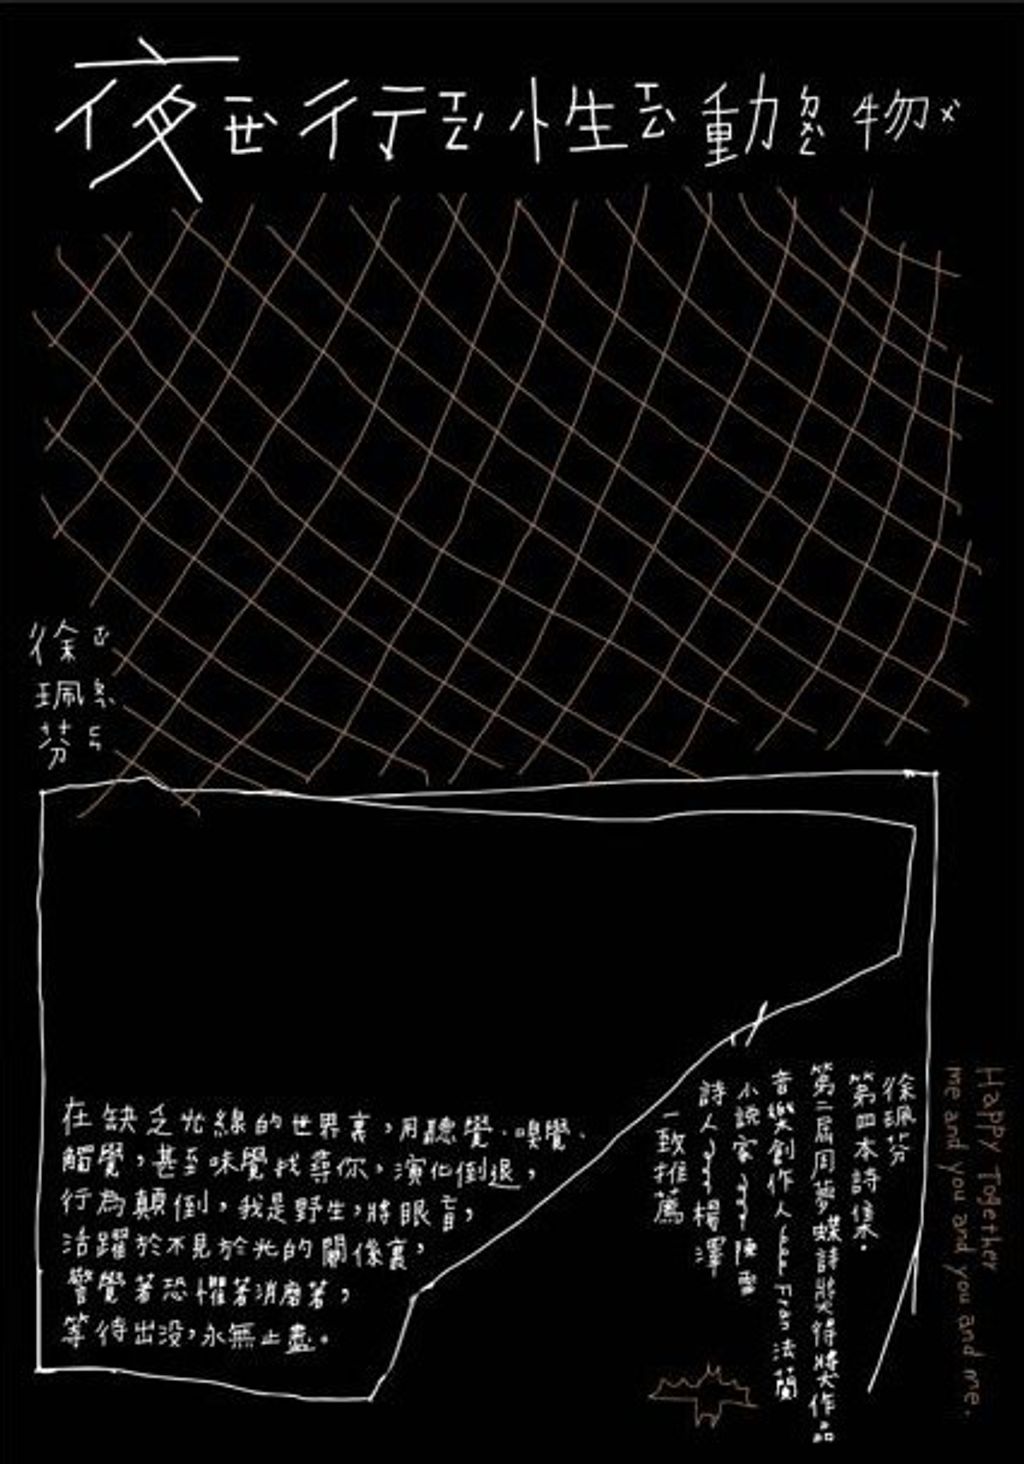 夜ㄝ行ㄥ性ㄥ動ㄉㄨㄥ物ㄨ
徐
珮
芬
在缺乏光線的世界裏，用聽覺、嗅覺、
觸覺，甚至味覺找尋你，演化倒退，
行為顛倒，我是野生，將眼盲，
活躍於不見於光的關係裏，
警覺著恐懼著消磨著，
等待出沒，永無止盡。
徐珮芬
第四本詩集。
第二屆周夢蝶詩獎得獎作品
音樂創作人 Fran 法蘭
小說家 陳雪
詩人 楊澤
一致推薦
Happy Together
me and you and you and me.